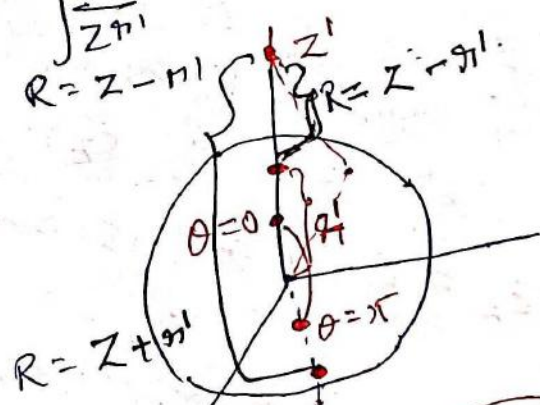 ∫ zr'
R = Z - r'
Z'
R = Z - r'
θ = 0
r'
θ = π
R = Z + r'